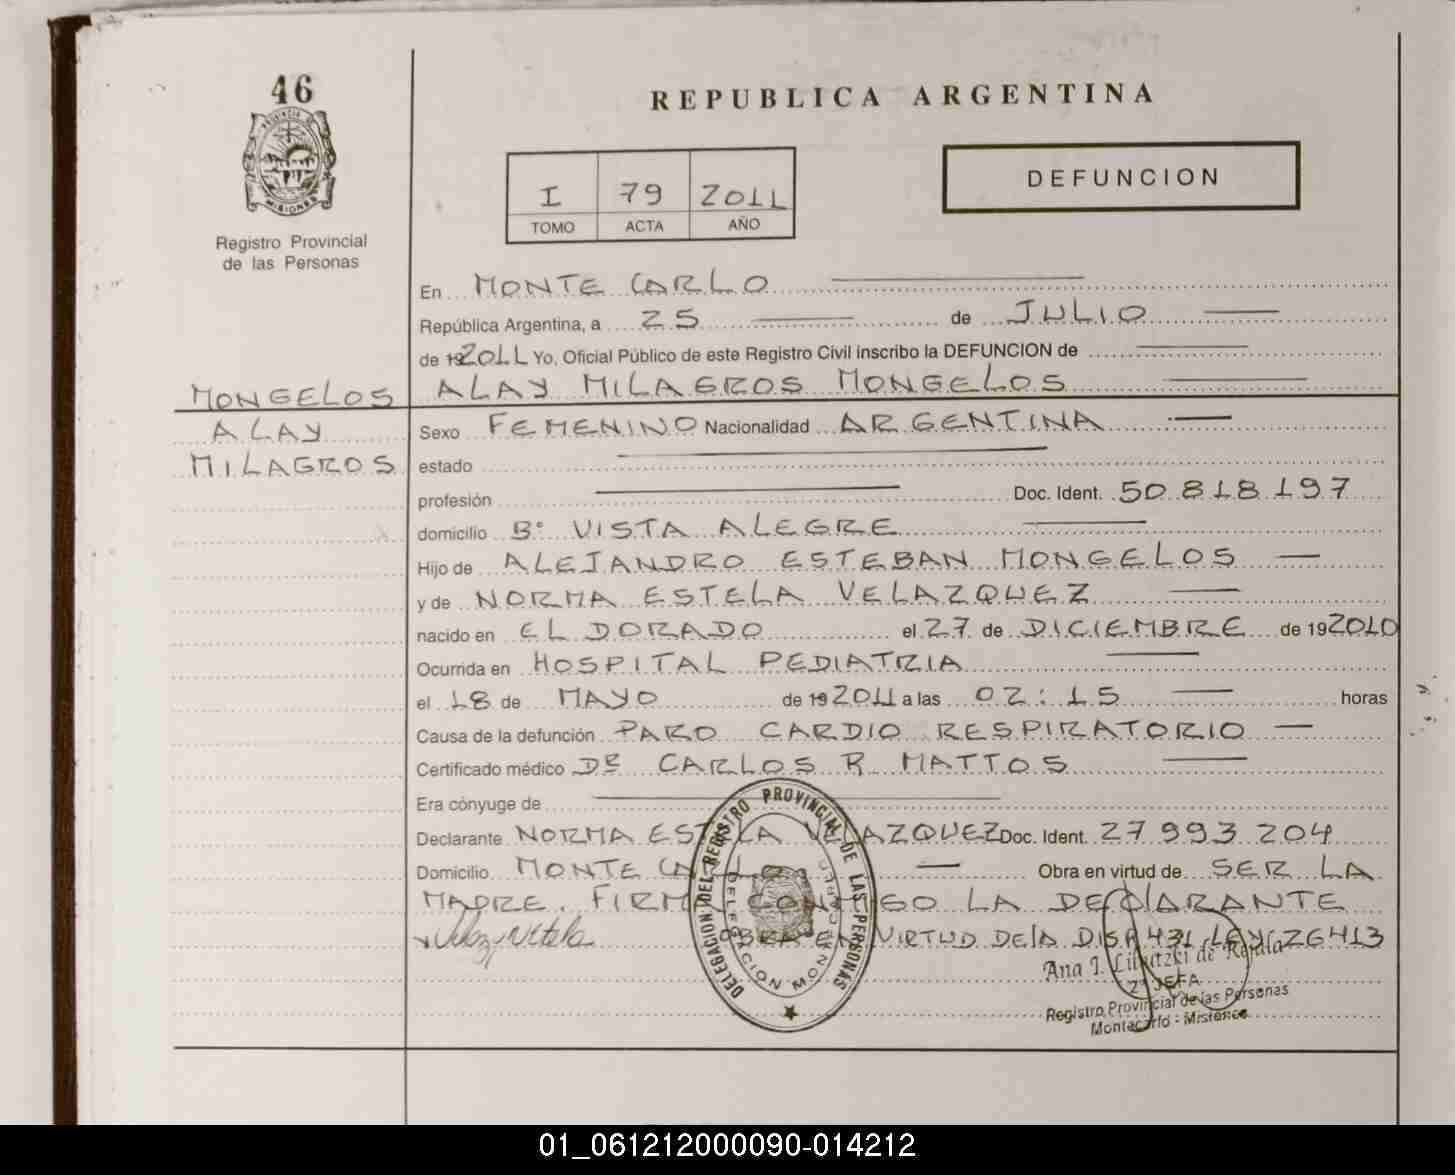 46
PROVINCIA DE
MISIONES
Registro Provincial
de las Personas
MONGELOS
ALAY
MILAGROS
REPUBLICA ARGENTINA
I 79 2011
TOMO ACTA AÑO
DEFUNCION
En MONTE CARLO
República Argentina, a 25 de JULIO
de 192011 Yo, Oficial Público de este Registro Civil inscribo la DEFUNCION de
ALAY MILAGROS MONGELOS
Sexo FEMENINO Nacionalidad ARGENTINA
estado
profesión Doc. Ident. 50 818 197
domicilio B° VISTA ALEGRE
Hijo de ALEJANDRO ESTEBAN MONGELOS
y de NORMA ESTELA VELAZQUEZ
nacido en EL DORADO el 27 de DICIEMBRE de 192010
Ocurrida en HOSPITAL PEDIATRIA
el 18 de MAYO de 192011 a las 02:15 horas
Causa de la defunción PARO CARDIO RESPIRATORIO
Certificado médico DR CARLOS R MATTOS
Era cónyuge de
Declarante NORMA ESTELA VELAZQUEZ Doc. Ident. 27 993 204
Domicilio MONTE CARLO Obra en virtud de SER LA
MADRE. FIRMA CONMIGO LA DECLARANTE
OBRA EN VIRTUD DE LA DISP. 431 LEY 26413
DELEGACION DEL REGISTRO PROVINCIAL DE LAS PERSONAS
Ana I. de
2° JEFA
Registro Provincial de las Personas
Montecarlo - Misiones
01_061212000090-014212